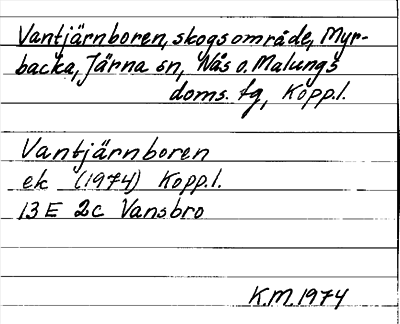 Vantjärnboren, skogsområde, Myr-
backa, Järna sn, Nås o. Malungs
doms. tg, Kopp.l.
Vantjärnboren
ek (1974) Kopp.l.
13 E 2c Vansbro
K.M. 1974